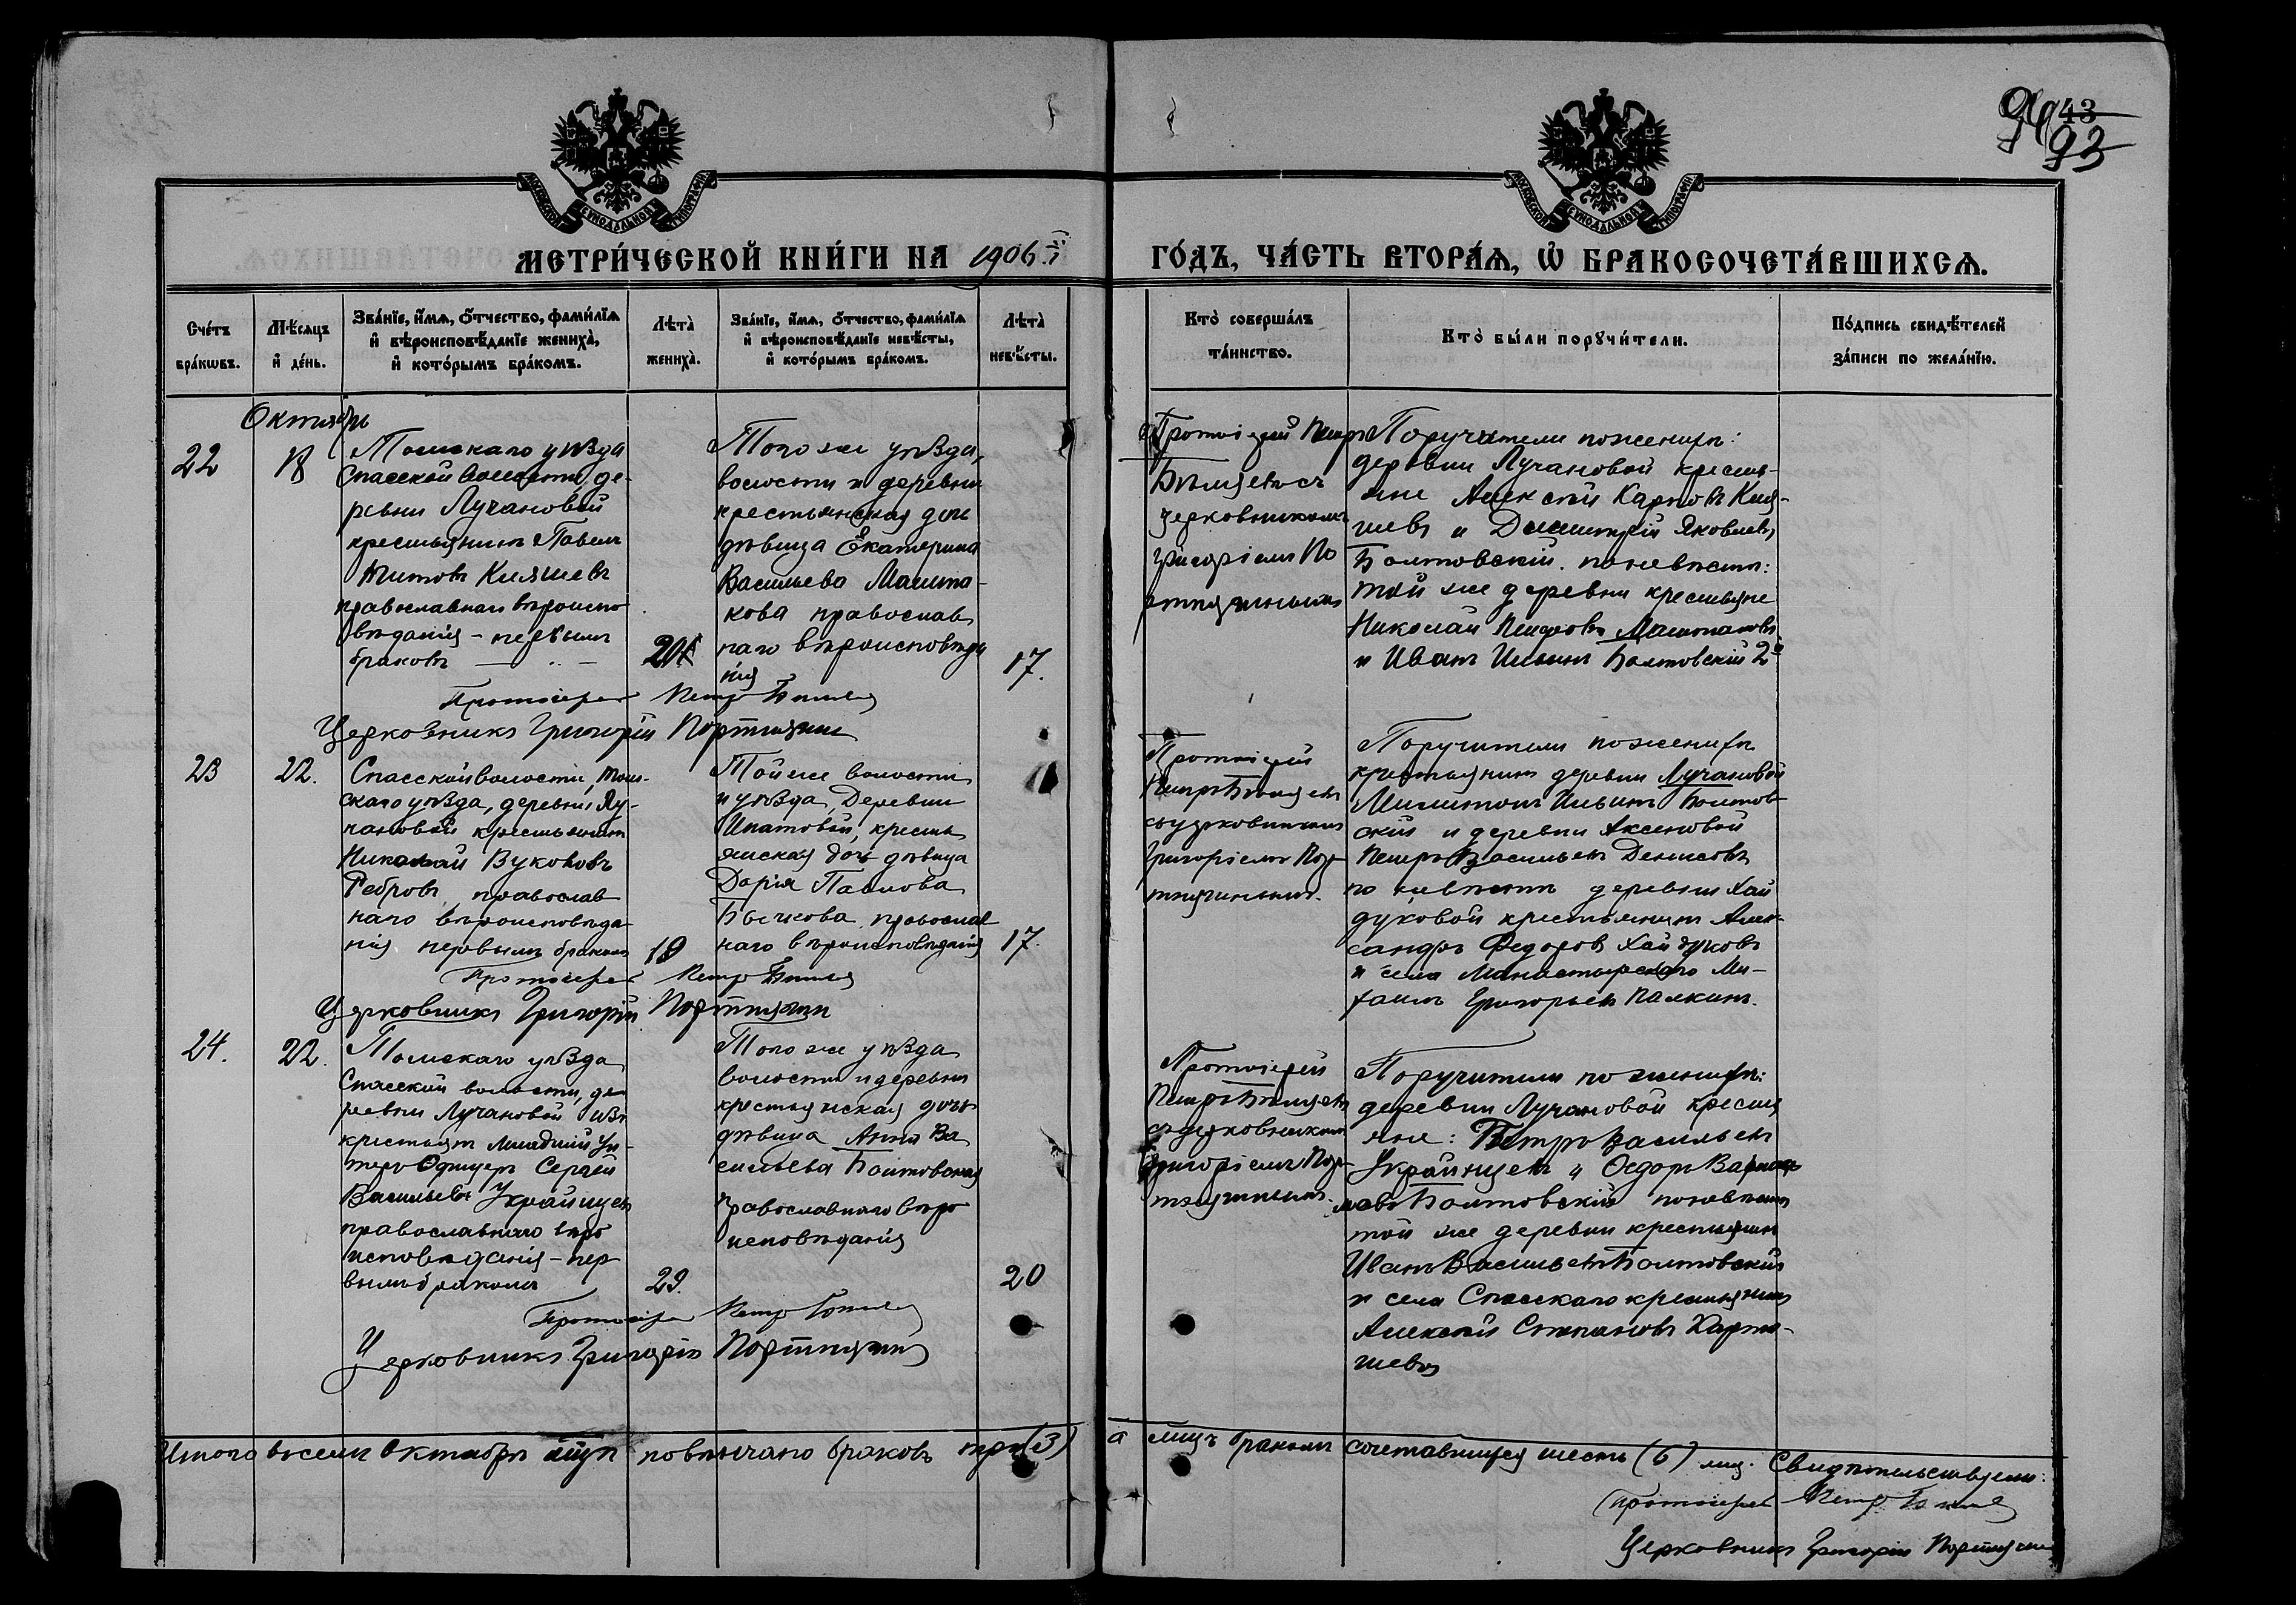 43
94
93
МОСКОВСКОЙ СѴНОДАЛЬНОЙ ТИПОГРАФІИ
МОСКОВСКОЙ СѴНОДАЛЬНОЙ ТИПОГРАФІИ
МЕТРИ́ЧЕСКОЙ КНИ́ГИ НА 1906 й ГО́ДЪ, ЧА́СТЬ ВТОРА́Ѧ, Ѽ БРАКОСОЧЕТА́ВШИХСѦ.
Сче́тъ бра́кѡвъ.
Мѣ́сяцъ и҆ де́нь.
Зва́нїе, и҆́мѧ, ѻ҆́тчество, фами́лїѧ
и҆ вѣроисповѣ́данїе жениха̀,
и҆ кото́рымъ бра́комъ.
Лѣта̀ жениха̀.
Зва́нїе, и҆́мѧ, ѻ҆́тчество, фами́лїѧ
и҆ вѣроисповѣ́данїе невѣ́сты,
и҆ кото́рымъ бра́комъ.
Лѣта̀ невѣ́сты.
Кто̀ соверша́лъ та́инство.
Кто̀ бы́ли порꙋчи́тели.
По́дпись свидѣ́телей за́писи по жела́нїю.
Октябрь
22
18
Томскаго уѣзда
Спасской волости, де-
ревни Лучановой
крестьянинъ Павелъ
Титовъ Киляшевъ
православнаго вѣроиспо
вѣданія - первымъ
бракомъ
20
Того же уѣзда,
волости и деревни
крестьянская дочь
дѣвица Екатерина
Васильева Машта-
кова православ
наго вѣроисповѣда
нія
17.
Протоіерей Петръ
Бѣляевъ съ
церковникомъ
Григоріемъ По
ртнягинымъ
Поручители по женихѣ:
деревни Лучановой кресть-
яне Алексѣй Карповъ Киля-
шевъ и Димитрій Яковлевъ
Болтовскій. по невѣстѣ:
той же деревни крестьяне
Николай Петровъ Маштаковъ
и Иванъ Ильинъ Болтовскій 2й
Протоіерей Петръ Бѣляевъ
Церковникъ Григорій Портнягинъ
23
22.
Спасской волости, Том-
скаго уѣзда, деревни Лу-
чановой крестьянинъ
Николай Вуколовъ
Ребровъ, православ
наго вѣроисповѣда
нія первымъ бракомъ
19
Той же волости
и уѣзда, Деревни
Ипатовой, кресть
янская дочь дѣвица
Дарія Павлова
Бычкова православ
наго вѣроисповѣданія
17.
Протоіерей
Петръ Бѣляевъ
съ церковникомъ
Григоріемъ Пор-
тнягинымъ.
Поручители по женихѣ
крестьянинъ деревни Лучановой
Милитонъ Ильинъ Болтов-
скій и деревни Аксеновой
Петръ Васильевъ Денисовъ
по невѣстѣ деревни Хай
дуковой крестьянинъ Алек-
сандръ Федоровъ Хайдуковъ
и села Манастырскаго Ми-
хаилъ Григорьевъ Палкинъ.
Протоіерей Петръ Бѣляевъ
Церковникъ Григорій Портнягинъ
24.
22.
Томскаго уѣзда
Спасской волости, де
ревни Лучановой изъ
крестьянъ младшій ун-
теръ Офицеръ Сергѣй
Васильевъ Украинцевъ
православнаго вѣро
исповѣданія - пер
вымъ бракомъ
29.
Того же уѣзда
волости и деревни
крестьянская дочь
дѣвица Анна Ва
сильева Болтовская
православнаго вѣро
исповѣданія
20
Протоіерей
Петръ Бѣляевъ
съ церковникомъ
Григоріемъ Пор-
тнягинымъ.
Поручители по женихѣ:
деревни Лучановой кресть
яне: Петръ Васильевъ
Украинцевъ и Ѳедоръ Варлам-
мовъ Болтовскій по невѣстѣ
той же деревни крестьянинъ
Иванъ Васильевъ Болтовскій
и села Спасскаго крестьянинъ
Алексѣй Степановъ Карта-
шевъ
Протоіерей Петръ Бѣляевъ
Церковникъ Григорій Портнягинъ
Итого въ семъ Октябрѣ повѣнчано браковъ три (3) а лицъ бракомъ сочетавшихся шесть (6) лиц. Свидѣтельствуемъ:
Протоіерей Петръ Бѣляевъ
Церковникъ Григорій Портнягинъ